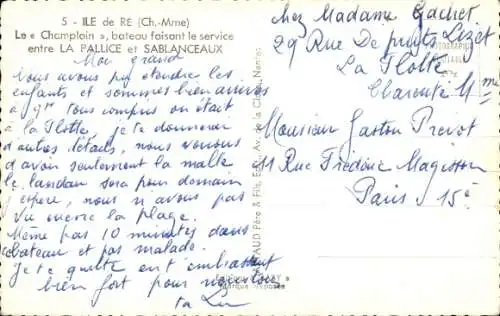 5 - ILE de RE (Ch.-Mme)
Le « Champlain », bateau faisant le service
entre LA PALLICE et SABLANCEAUX
Mon grand
Nous avons pu étendre les
enfants et sommes bien arrivés
à 9h tous compris on était
à la Flotte, je te donnerai
d'autres détails, nous venons
d'avoir seulement la malle
le landau sera pour demain
j'espère, nous n avons pas
vu encore la plage.
Même pas 10 minutes dans
bateau et pas malade.
Je te quitte en t'embrassant
bien fort pour
ta
chez Madame Gachet
29 Rue De
La Flotte
Charente Mme
Monsieur Gaston Prevot
11 Rue Frédéric Magisson
Paris 15e
Père & Fils, Edit., Av. de la Nantes